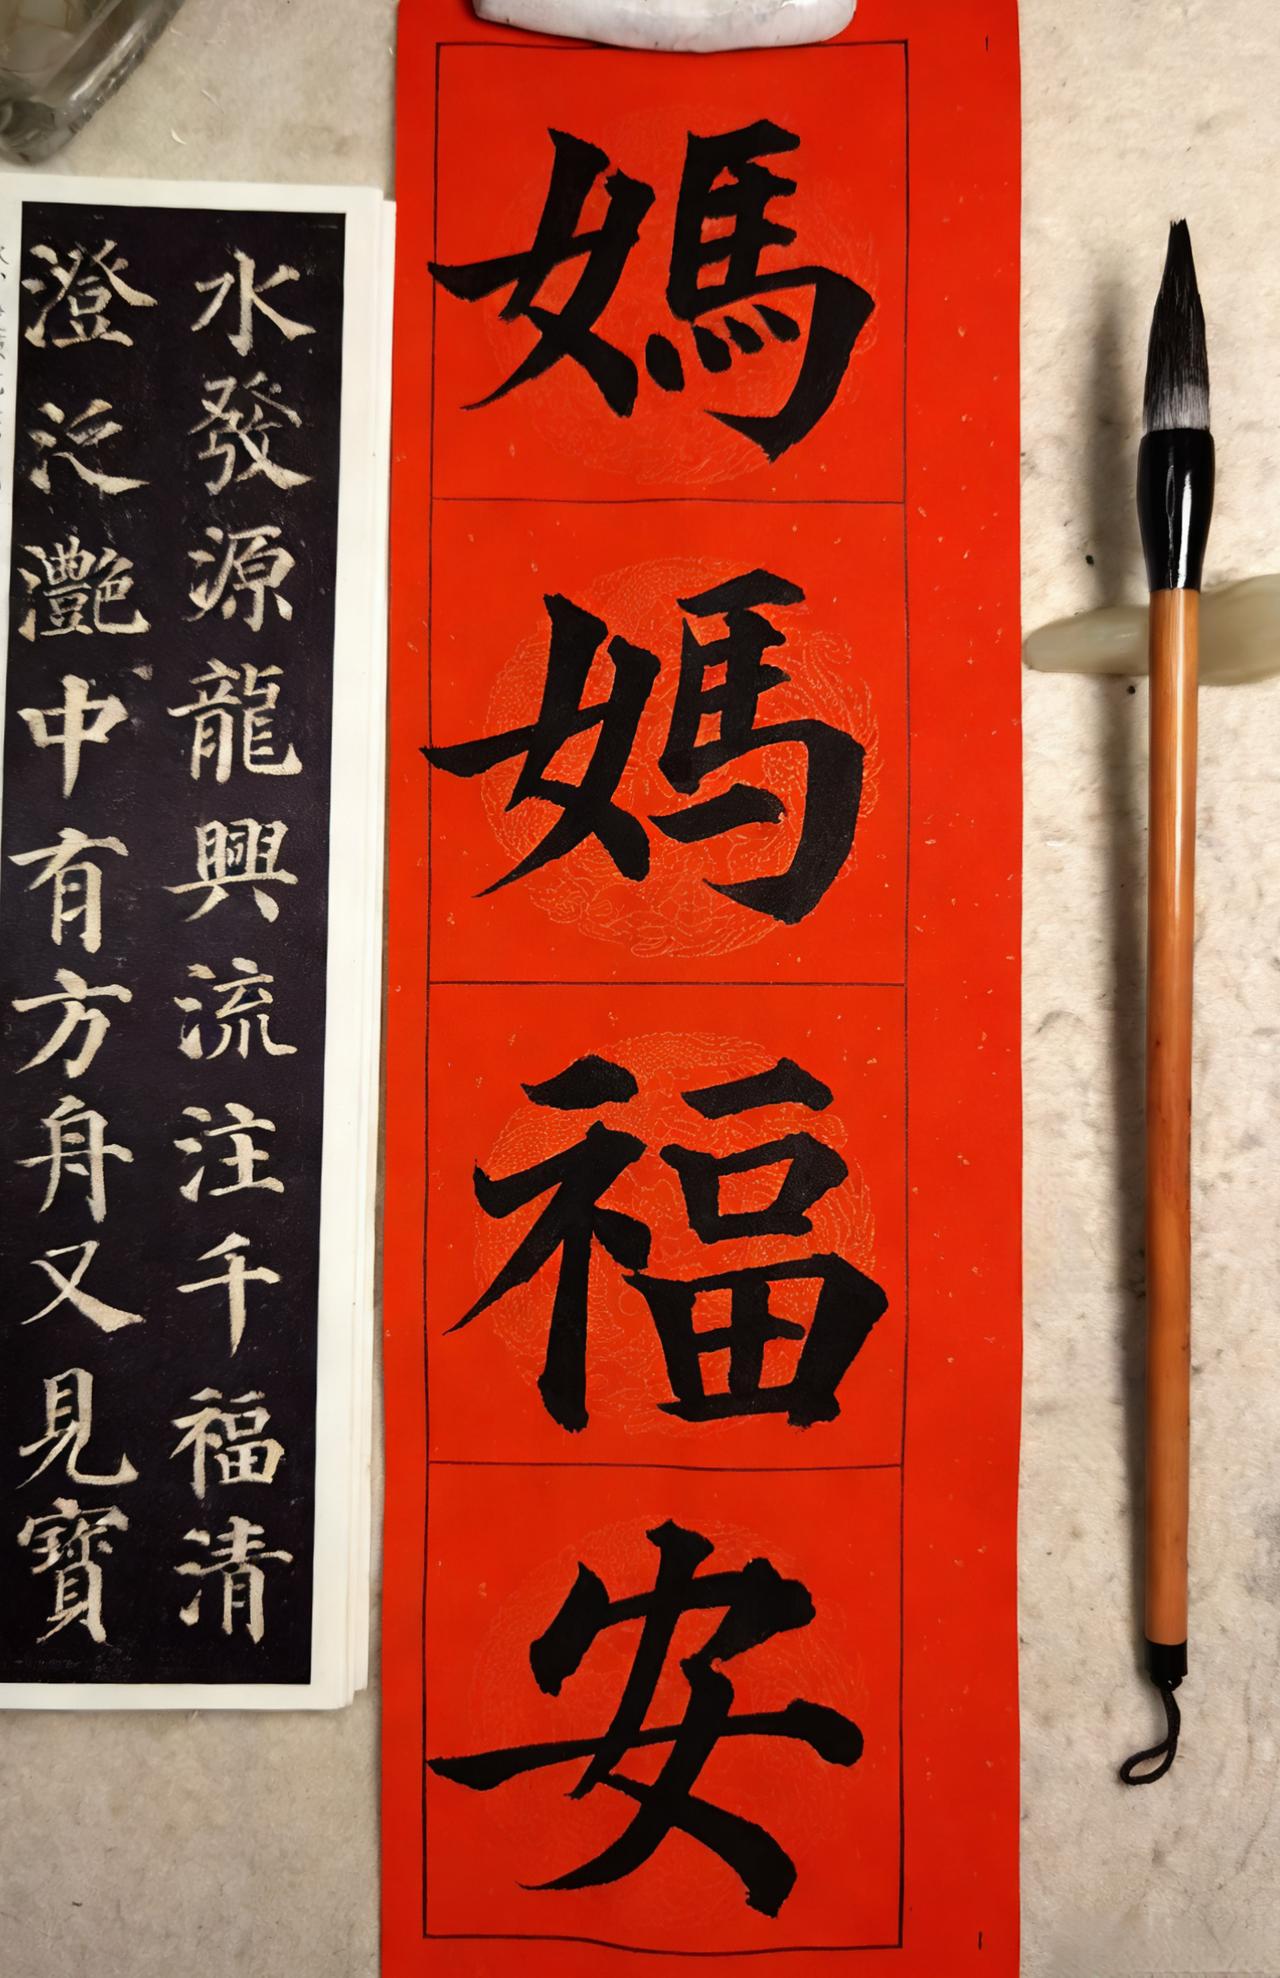 媽媽福安
水發源龍興流注千福清
澄泛灩中有方舟又見寶